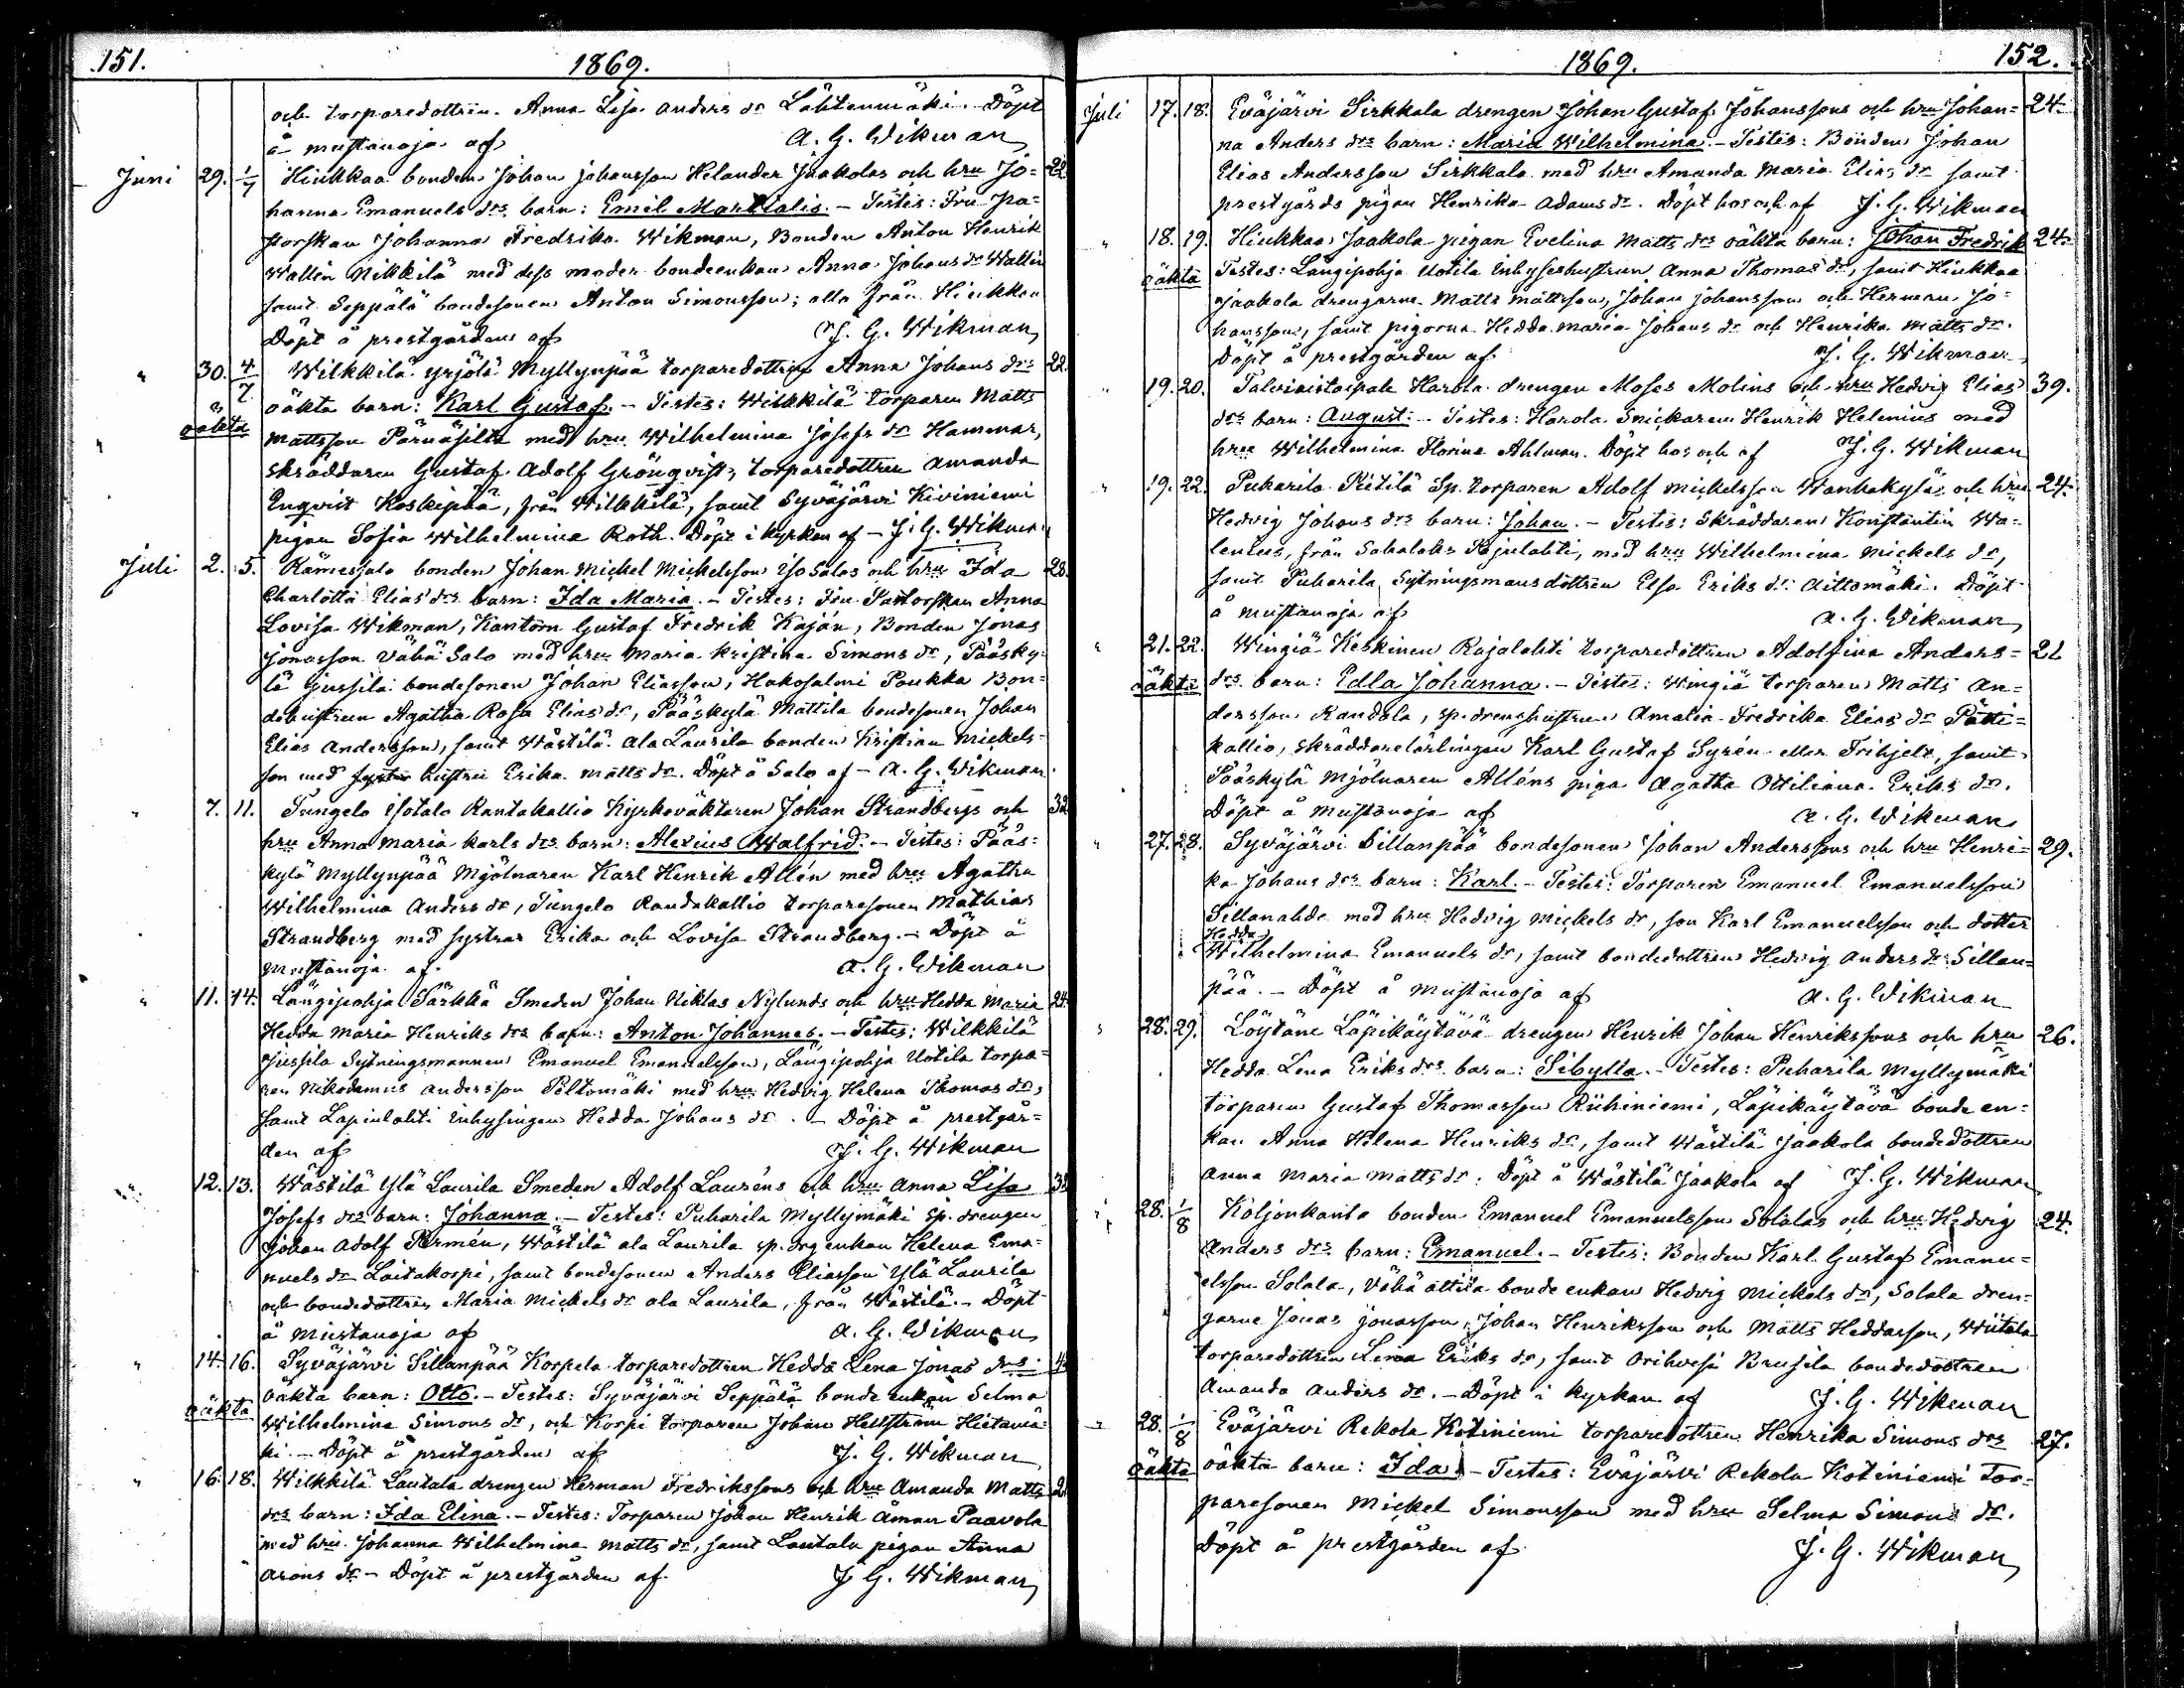 151. 1869.
och torparedottren Anna Lisa Anders dr Lähteenmäki. Döpt
å Mustanoja af A. G. Wikman
Juni 29. 1/7 Hiukkaa bonden Johan Johansson Helander Jaakolas och hru Jo= 22.
hanna Emanuels drs barn: Emil Martialis. – Testes: Fru Pa=
storskan Johanna Fredrika Wikman, Bonden Anton Henrik
Wallin Nikkilä med dess moder bondeenkan Anna Johans dr Wallin
samt Seppälä bondesonen Anton Simonsson; alla från Hiukkaa
Döpt å prestgården af J. G. Wikman
" 30. 4/7 Wilkkilä Yrjölä Myllynpää torparedottren Anna Johans drs 22.
oäkta oäkta barn: Karl Gustaf. – Testes: Wilkkilä torparen Matts
Mattsson Pärnäsilta med hru Wilhelmina Josefs dr Hammar,
skräddaren Gustaf Adolf Grönqvist, torparedottren Amanda
Enqvist Koskipää, från Wilkkilä, samt Syväjärvi Kiviniemi
pigan Sofia Wilhelmina Roth. Döpt i kyrkan af – J. G. Wikman
Juli 2. 5. Rämessalo bonden Johan Mickel Mickelsson Iso Salos och hru Ida 28.
Charlotta Elias drs barn: Ida Maria. – Testes: Fru Pastorskan Anna
Lovisa Wikman, Kantorn Gustaf Fredrik Kaján, Bonden Jonas
Jonasson Vähä Salo med hru Maria Kristina Simons dr, Pääsky=
lä Jussila bondesonen Johan Eliasson, Hakosalmi Poukka Bon=
dehustrun Agatha Rosa Elias dr, Pääskylä Mattila bondesonen Johan
Elias Andersson, samt Wästilä Ala Laurila bonden Kristian Mickels=
son med hustru Erika Matts dr. Döpt å Salo af – A. G. Wikman
" 7. 11. Tungelo Isotalo Rantakallio Kyrkoväktaren Johan Strandbergs och 32
hru Anna Maria Karls drs barn: Alexius Walfrid. – Testes: Pääs=
kylä Myllynpää Mjölnaren Karl Henrik Allén med hru Agatha
Wilhelmina Anders dr, Tungelo Randakallio torparesonen Mathias
Strandberg med systrar Erika och Lovisa Strandberg. – Döpt å
Mustanoja af. A. G. Wikman
" 11. 14. Längipohja Särkkä Smeden Johan Niklas Nylunds och hru Hedda Maria 24.
Hedda Maria Henriks drs barn: Anton Johannes. – Testes: Wilkkilä
Jussila Sytningsmannen Emanuel Emanuelsson, Längipohja Uotila torpa=
ren Nikodemus Andersson Peltomäki med hru Hedvig Helena Thomas dr,
samt Lapinlahti Inhysingen Hedda Johans dr. – Döpt å prestgår=
den af J. G. Wikman
" 12. 13. Wästilä Ylä Laurila Smeden Adolf Lauréns och hru Anna Lisa
Josefs drs barn: Johanna. – Testes: Puharila Myllymäki Sp. drengen
Johan Adolf Permén, Wästilä ala Laurila sp. drg enkan Helena Ema=
nuels dr Laitakorpi, samt bondesonen Anders Eliasson Ylä Laurila
och bondedottren Maria Mickels dr ala Laurila, från Wästilä. – Döpt
å Mustanoja af A. G. Wikman
" 14. 16. Syväjärvi Sillanpää Korpela torparedottren Hedda Lena Jonas drs
oäkta oäkta barn: Otto. – Testes: Syväjärvi Seppälä bonde enkan Selma
Wilhelmina Simons dr, och Korpi torparen Johan Hellström Hietamä=
ki. – Döpt å prestgården af J. G. Wikman
" 16. 18. Wilkkilä Lautala drengen Herman Fredrikssons och hru Amanda Matts
drs barn: Ida Elina. – Testes: Torparen Johan Henrik Åman Paavola
med hru Johanna Wilhelmina Matts dr, samt Lautala pigan Anna
Arons dr – Döpt å prestgården af J. G. Wikman
1869. 152.
Juli 17. 18. Eväjärvi Sirkkala drengen Johan Gustaf Johanssons och hru Johan= 24.
na Anders drs barn: Maria Wilhelmina. – Testes: Bonden Johan
Elias Andersson Sirkkala med hru Amanda Maria Elias dr samt
prestgårds pigan Henrika Adams dr. Döpt hos och af J. G. Wikman
" 18. 19. Hiukkaa Jaakola pigan Evelina Matts drs oäkta barn: Johan Fredrik 24.
oäkta Testes: Längipohja Uotila Inhyseshustrun Anna Thomas dr, samt Hiukkaa
Jaakola drengarne Matts Mattsson, Johan Johansson och Herman Jo=
hansson, samt pigorna Hedda Maria Johans dr och Henrika Matts dr.
Döpt å prestgården af. J. G. Wikman
" 19. 20. Talviaistaipale Harola drengen Moses Molins och hru Hedvig Elias 39.
drs barn: August. – Testes: Harola Snickaren Henrik Helenius med
hru Wilhelmina Florina Ahlman. Döpt hos och af J. G. Wikman
" 19. 22. Puharila Pietilä Sp. torparen Adolf Mickelsson Wanhakyläs och hru 24.
Hedvig Johans drs barn: Johan. – Testes: Skräddaren Konstantin Wa=
lenius, från Sahalaks Pajulahti, med hru Wilhelmina Mickels dr,
samt Puharila Sytningsmans dottren Elsa Eriks dr Aittomäki. Döpt
å Mustanoja af A. G. Wikman
" 21. 22. Wingiä Keskinen Rajalahti torparedottren Adolfina Anders= 21
oäkta drs barn: Edla Johanna. – Testes: Wingiä torparen Matts An=
dersson Randala, sp. drenghustrun Amalia Fredrika Elias dr Pätti=
kallio, skräddarelärlingen Karl Gustaf Syrén eller Frihjelt, samt
Pääskylä Mjölnaren Alléns piga Agatha Ottiliana Eriks dr.
Döpt å Mustanoja af A. G. Wikman
" 27. 28. Syväjärvi Sillanpää bondesonen Johan Anderssons och hru Henri= 29.
ka Johans drs barn: Karl. – Testes: Torparen Emanuel Emanuelsson
Sillanahde med hru Hedvig Mickels dr, son Karl Emanuelsson och dotter
Hedda
Wilhelmina Emanuels dr, samt bondedottren Hedvig Anders dr Sillan=
pää. – Döpt å Mustanoja af A. G. Wikman
" 28. 29. Löytäne Läpikäytävä drengen Henrik Johan Henrikssons och hru 26.
Hedda Lena Eriks drs barn: Sibylla. – Testes: Puharila Myllymäki
torparen Gustaf Thomasson Riihiniemi, Läpikäytävä bonde en=
kan Anna Helena Henriks dr, samt Wästilä Jaakola bondedottren
Anna Maria Matts dr. Döpt å Wästilä Jaakola af J. G. Wikman
" 28. 1/8 Koljonkanta bonden Emanuel Emanuelsson Solalas och hru Hedvig 24.
Anders drs barn: Emanuel. – Testes: Bonden Karl Gustaf Emanu=
elsson Solala, Vähä Attila bonde enkan Hedvig Mickels dr, Solala dren=
garne Jonas Jonasson, Johan Henriksson och Matts Heddasson, Wiitala
torparedottren Lena Eriks dr, samt Orihvesi Brusila bondedottren
Amanda Anders dr. – Döpt i kyrkan af J. G. Wikman
" 28. 1/8 Eväjärvi Rekola Kotiniemi torparedottren Henrika Simons drs 27.
oäkta oäkta barn: Ida. – Testes: Eväjärvi Rekola Kotiniemi Tor=
paresonen Mickel Simonsson med hru Selma Simons dr.
Döpt å prestgården af J. G. Wikman